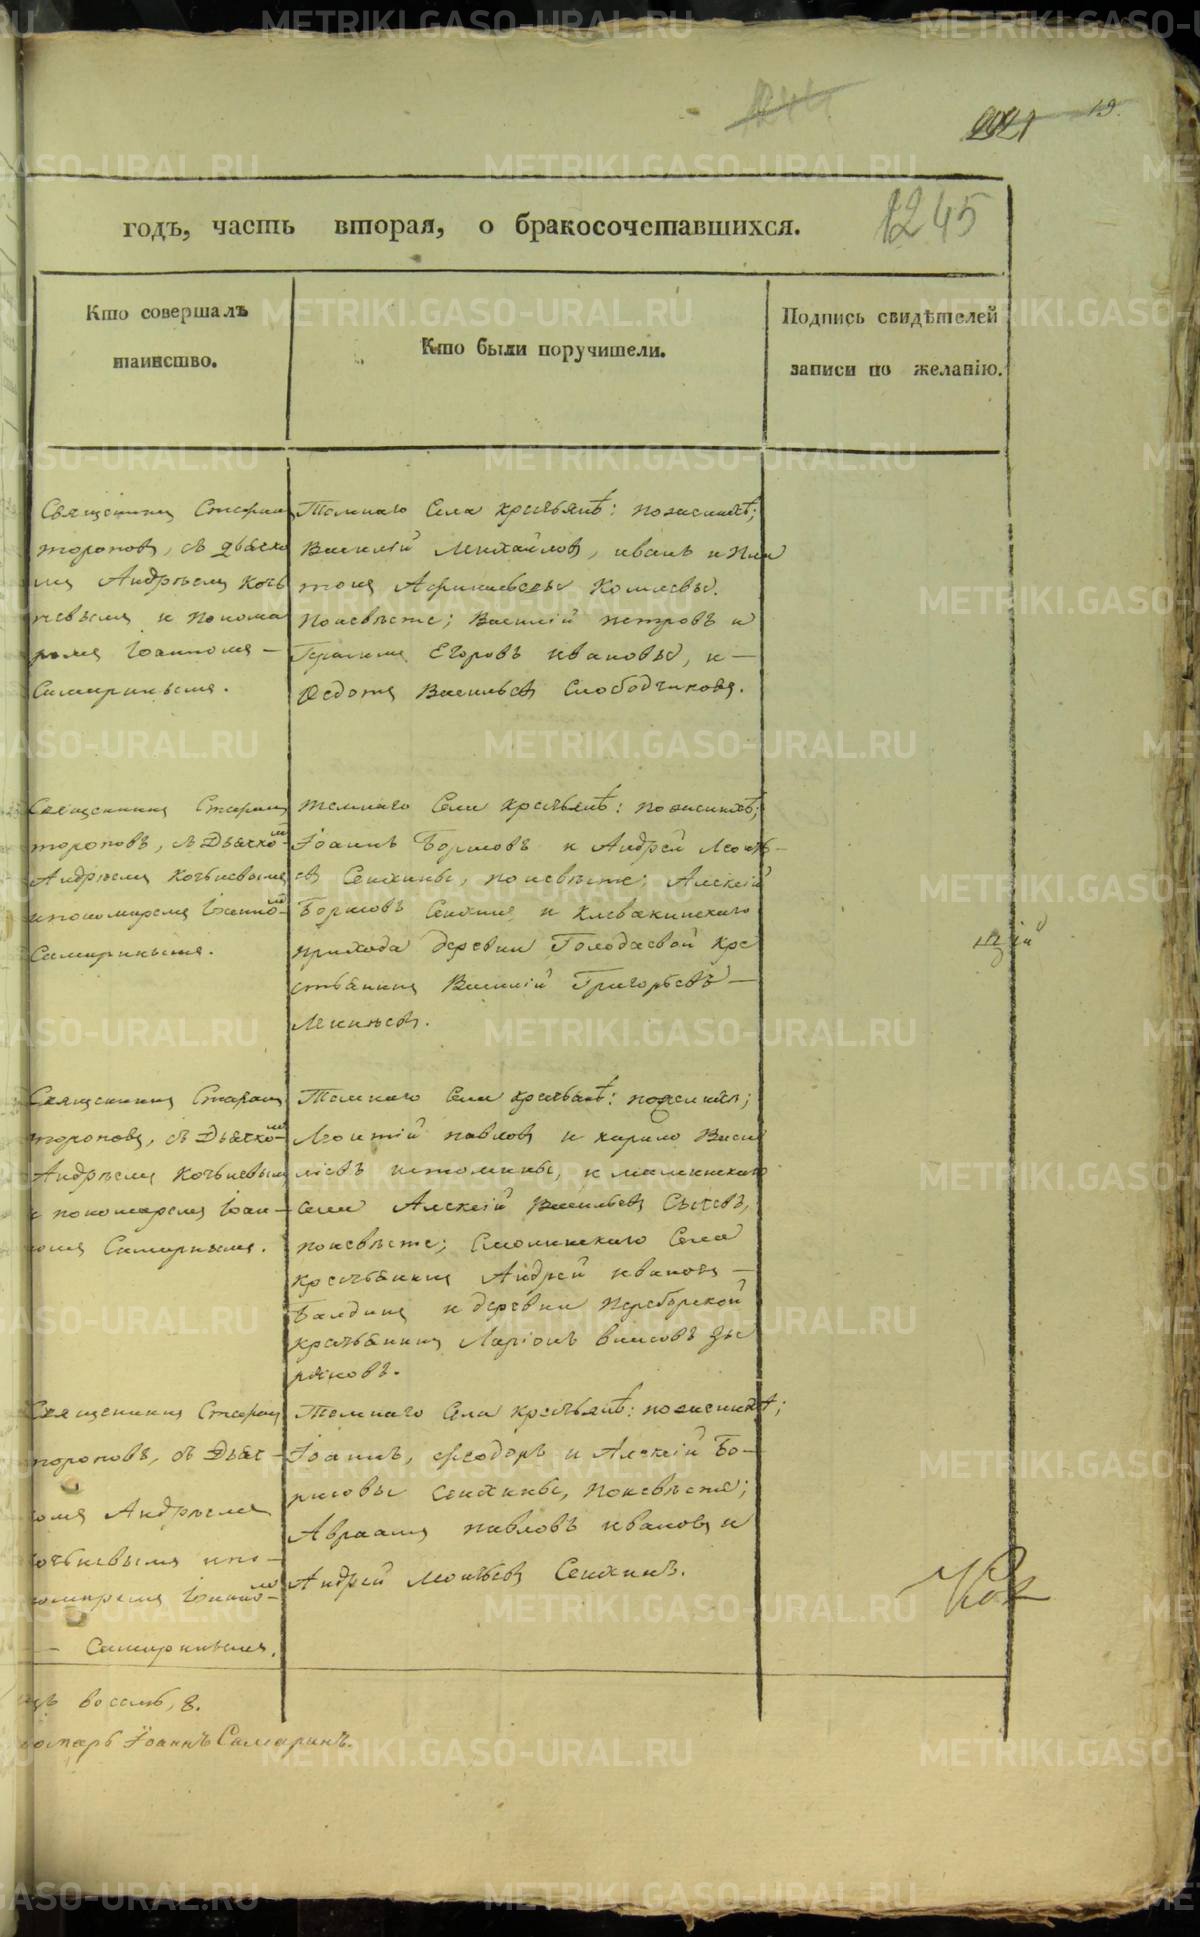 19.
1245
годъ, часть вторая, о бракосочетавшихся.
Кто совершалъ
таинство.
Кто были поручители.
Подпись свидѣтелей
записи по желанію.
Священникъ Стефанъ
тороповъ, съ дьячко
мъ Андреемъ Кочь
невымъ и понома
ремъ Іоанномъ —
Самаринымъ.
Тогожъ Села крестьянѣ: по женихѣ;
Василій Михайловъ, иванъ и Пла
тонъ
По невѣсте; Василій петровъ и
Герасимъ Егоровъ ивановы, и —
Ѳедотъ Васильевъ Слободчиковъ.
Священникъ Стефанъ
тороповъ, съ Дьячко-мъ
Андреемъ Кочьневымъ
и пономаремъ Іоанно-мъ
Самаринымъ.
Села крестьянѣ: по женихѣ;
Іоаннъ Борисовъ и Андрей Леонть-
евъ Сенхины, по невѣсте; Алексій
Борисовъ Сенхинъ и Клевакинскаго
прихода деревни Голодаевой кре
стьянинъ Василій Григорьевъ —
Священникъ Стефанъ
тороповъ, съ Дьячко-мъ
Андреемъ Кочьневымъ
и пономаремъ Іоан-
номъ Самаринымъ.
Села крестьянѣ: по женихѣ;
Леонтій павловъ и карпъ Васи
льевъ истомины, и маминскаго
села Алексій Васильевъ Сысевъ,
по невѣсте; Смолинскаго Села
крестьянинъ Андрей ивановъ —
Балдинъ и деревни Переборской
крестьянинъ Ларіонъ Власовъ Зы
ряновъ.
Священникъ Стефанъ
тороповъ, съ Дьяч-
комъ Андреемъ
Кочьневымъ и по-
номаремъ Іоанно-мъ
— Самаринымъ.
Села крестьянѣ: по женихѣ;
Іоаннъ, ѳеодоръ и Алексій Бо-
рисовы Сенхины, По невѣсте;
Авраамъ павловъ ивановъ и
Андрей Леонтьевъ Сенхинъ.
цій
восемь, 8.
номарь Іоаннъ Самаринъ.
METRIKI.GASO-URAL.RU